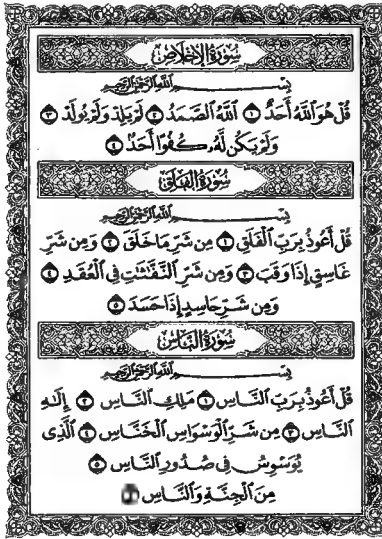 سُورَةُ الإِخْلَاصِ
بِسْمِ اللَّهِ الرَّحْمَٰنِ الرَّحِيمِ
قُلْ هُوَ ٱللَّهُ أَحَدٌ ١ ٱللَّهُ ٱلصَّمَدُ ٢ لَمْ يَلِدْ وَلَمْ يُولَدْ ٣
وَلَمْ يَكُن لَّهُۥ كُفُوًا أَحَدٌۢ ٤
سُورَةُ الفَلَقِ
بِسْمِ اللَّهِ الرَّحْمَٰنِ الرَّحِيمِ
قُلْ أَعُوذُ بِرَبِّ ٱلْفَلَقِ ١ مِن شَرِّ مَا خَلَقَ ٢ وَمِن شَرِّ
غَاسِقٍ إِذَا وَقَبَ ٣ وَمِن شَرِّ ٱلنَّفَّٰثَٰتِ فِى ٱلْعُقَدِ ٤
وَمِن شَرِّ حَاسِدٍ إِذَا حَسَدَ ٥
سُورَةُ النَّاسِ
بِسْمِ اللَّهِ الرَّحْمَٰنِ الرَّحِيمِ
قُلْ أَعُوذُ بِرَبِّ ٱلنَّاسِ ١ مَلِكِ ٱلنَّاسِ ٢ إِلَٰهِ
ٱلنَّاسِ ٣ مِن شَرِّ ٱلْوَسْوَاسِ ٱلْخَنَّاسِ ٤ ٱلَّذِى
يُوَسْوِسُ فِى صُدُورِ ٱلنَّاسِ ٥
مِنَ ٱلْجِنَّةِ وَٱلنَّاسِ